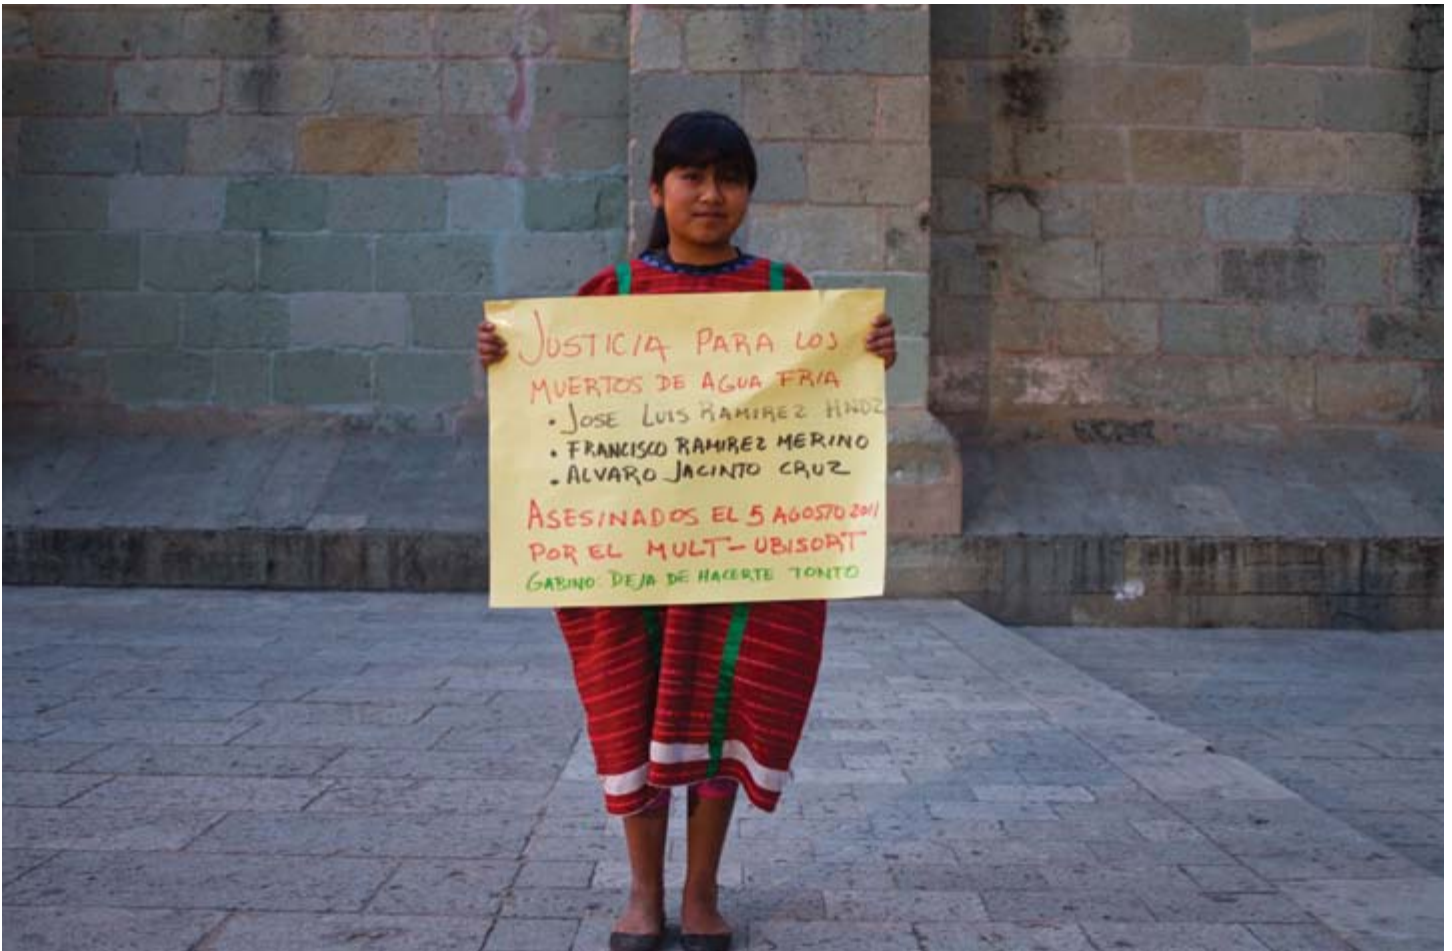 JUSTICIA PARA LOS
MUERTOS DE AGUA FRIA
• JOSE LUIS RAMIREZ HNDZ
• FRANCISCO RAMIREZ MERINO
• ALVARO JACINTO CRUZ
ASESINADOS EL 5 AGOSTO 2011
POR EL MULT-UBISORT
GABINO DEJA DE HACERTE TONTO